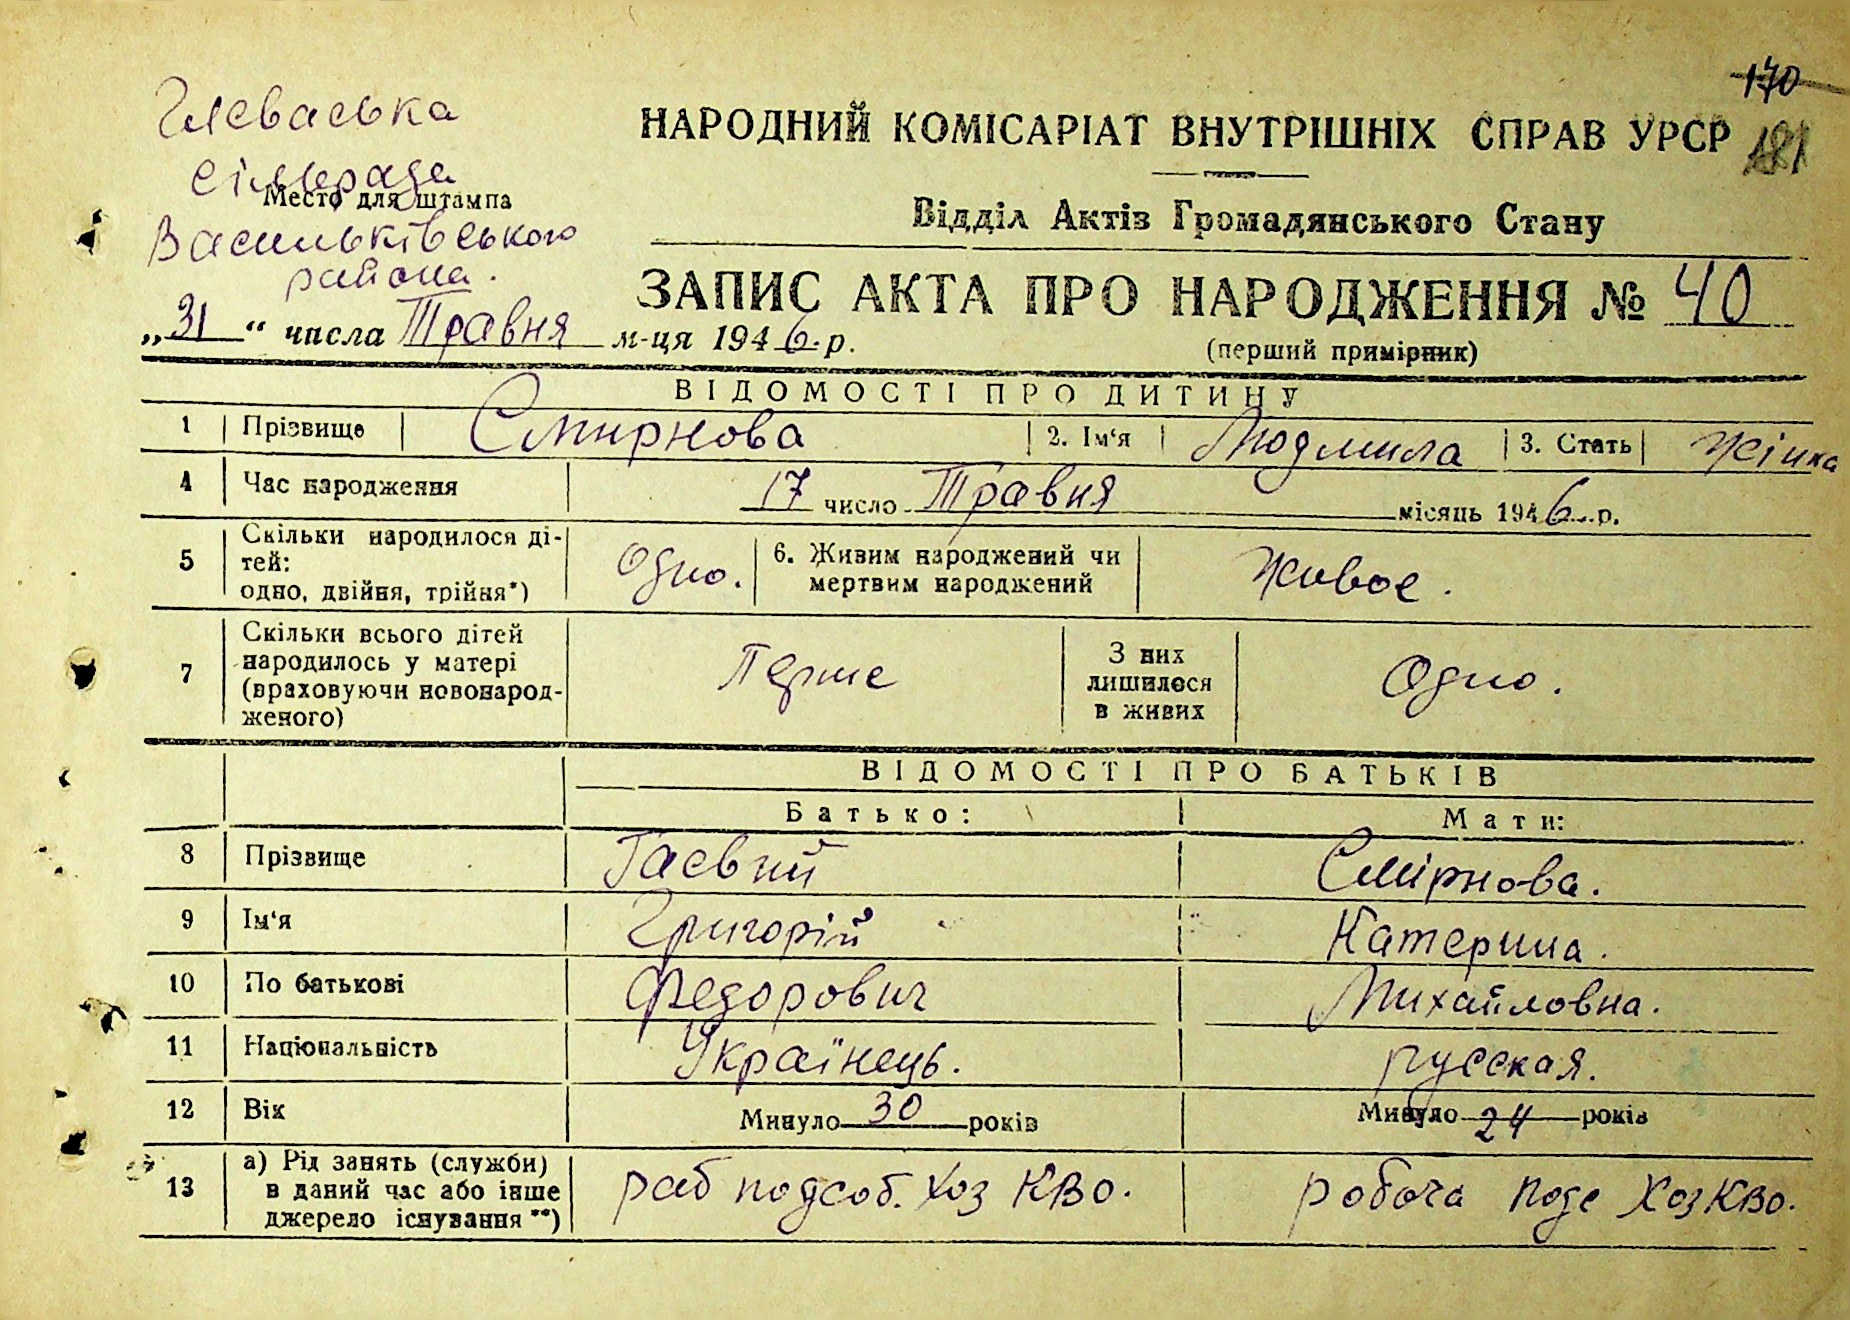 170
181
Глеваська
сільрада
Место для штампа
Васильківського
района.
НАРОДНИЙ КОМІСАРІАТ ВНУТРІШНІХ СПРАВ УРСР
Відділ Актів Громадянського Стану
ЗАПИС АКТА ПРО НАРОДЖЕННЯ № 40
(перший примірник)
„31“ числа Травня м-ця 1946.р.
ВІДОМОСТІ ПРО ДИТИНУ
1 Прізвище Смирнова 2. Ім‘я Людмила 3. Стать Жінка
4 Час народження 17 число Травня місяць 1946 р.
5 Скільки народилося ді-
тей:
одно, двійня, трійня*) Одно. 6. Живим народжений чи
мертвим народжений Живое.
7 Скільки всього дітей
народилось у матері
(враховуючи новонарод-
женого) Перше З них
лишилося
в живих Одно.
ВІДОМОСТІ ПРО БАТЬКІВ
Батько: Мати:
8 Прізвище Гаєвий Смірнова.
9 Ім‘я Григорій Катерина.
10 По батькові Федорович Михайловна.
11 Національність Українець. русская.
12 Вік Минуло 30 років Минуло 24 років
13 а) Рід занять (служби)
в даний час або інше
джерело існування **) раб подсоб. Хоз КВО. робоча подс Хоз КВО.